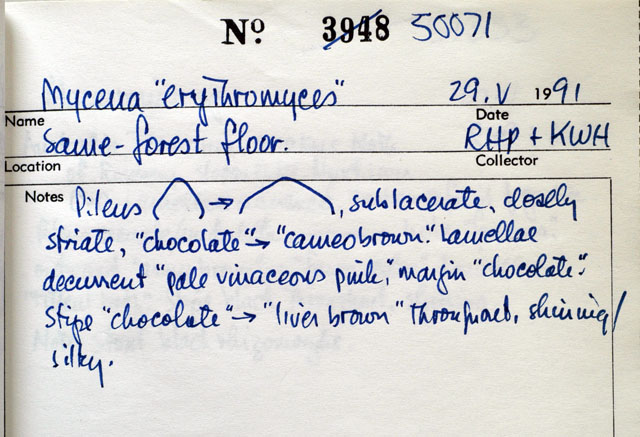 Nº 3948 50071
Mycena "erythromyces" 29.V 1991
Name Date
Same - forest floor. RHP + KWH
Location Collector
Notes Pileus → , sublacerate, closely
striate, "chocolate" → "cameo brown." Lamellae
decurrent "pale vinaceous pink," margin "chocolate".
Stipe "chocolate" → "liver brown" throughout, shining/
silky.